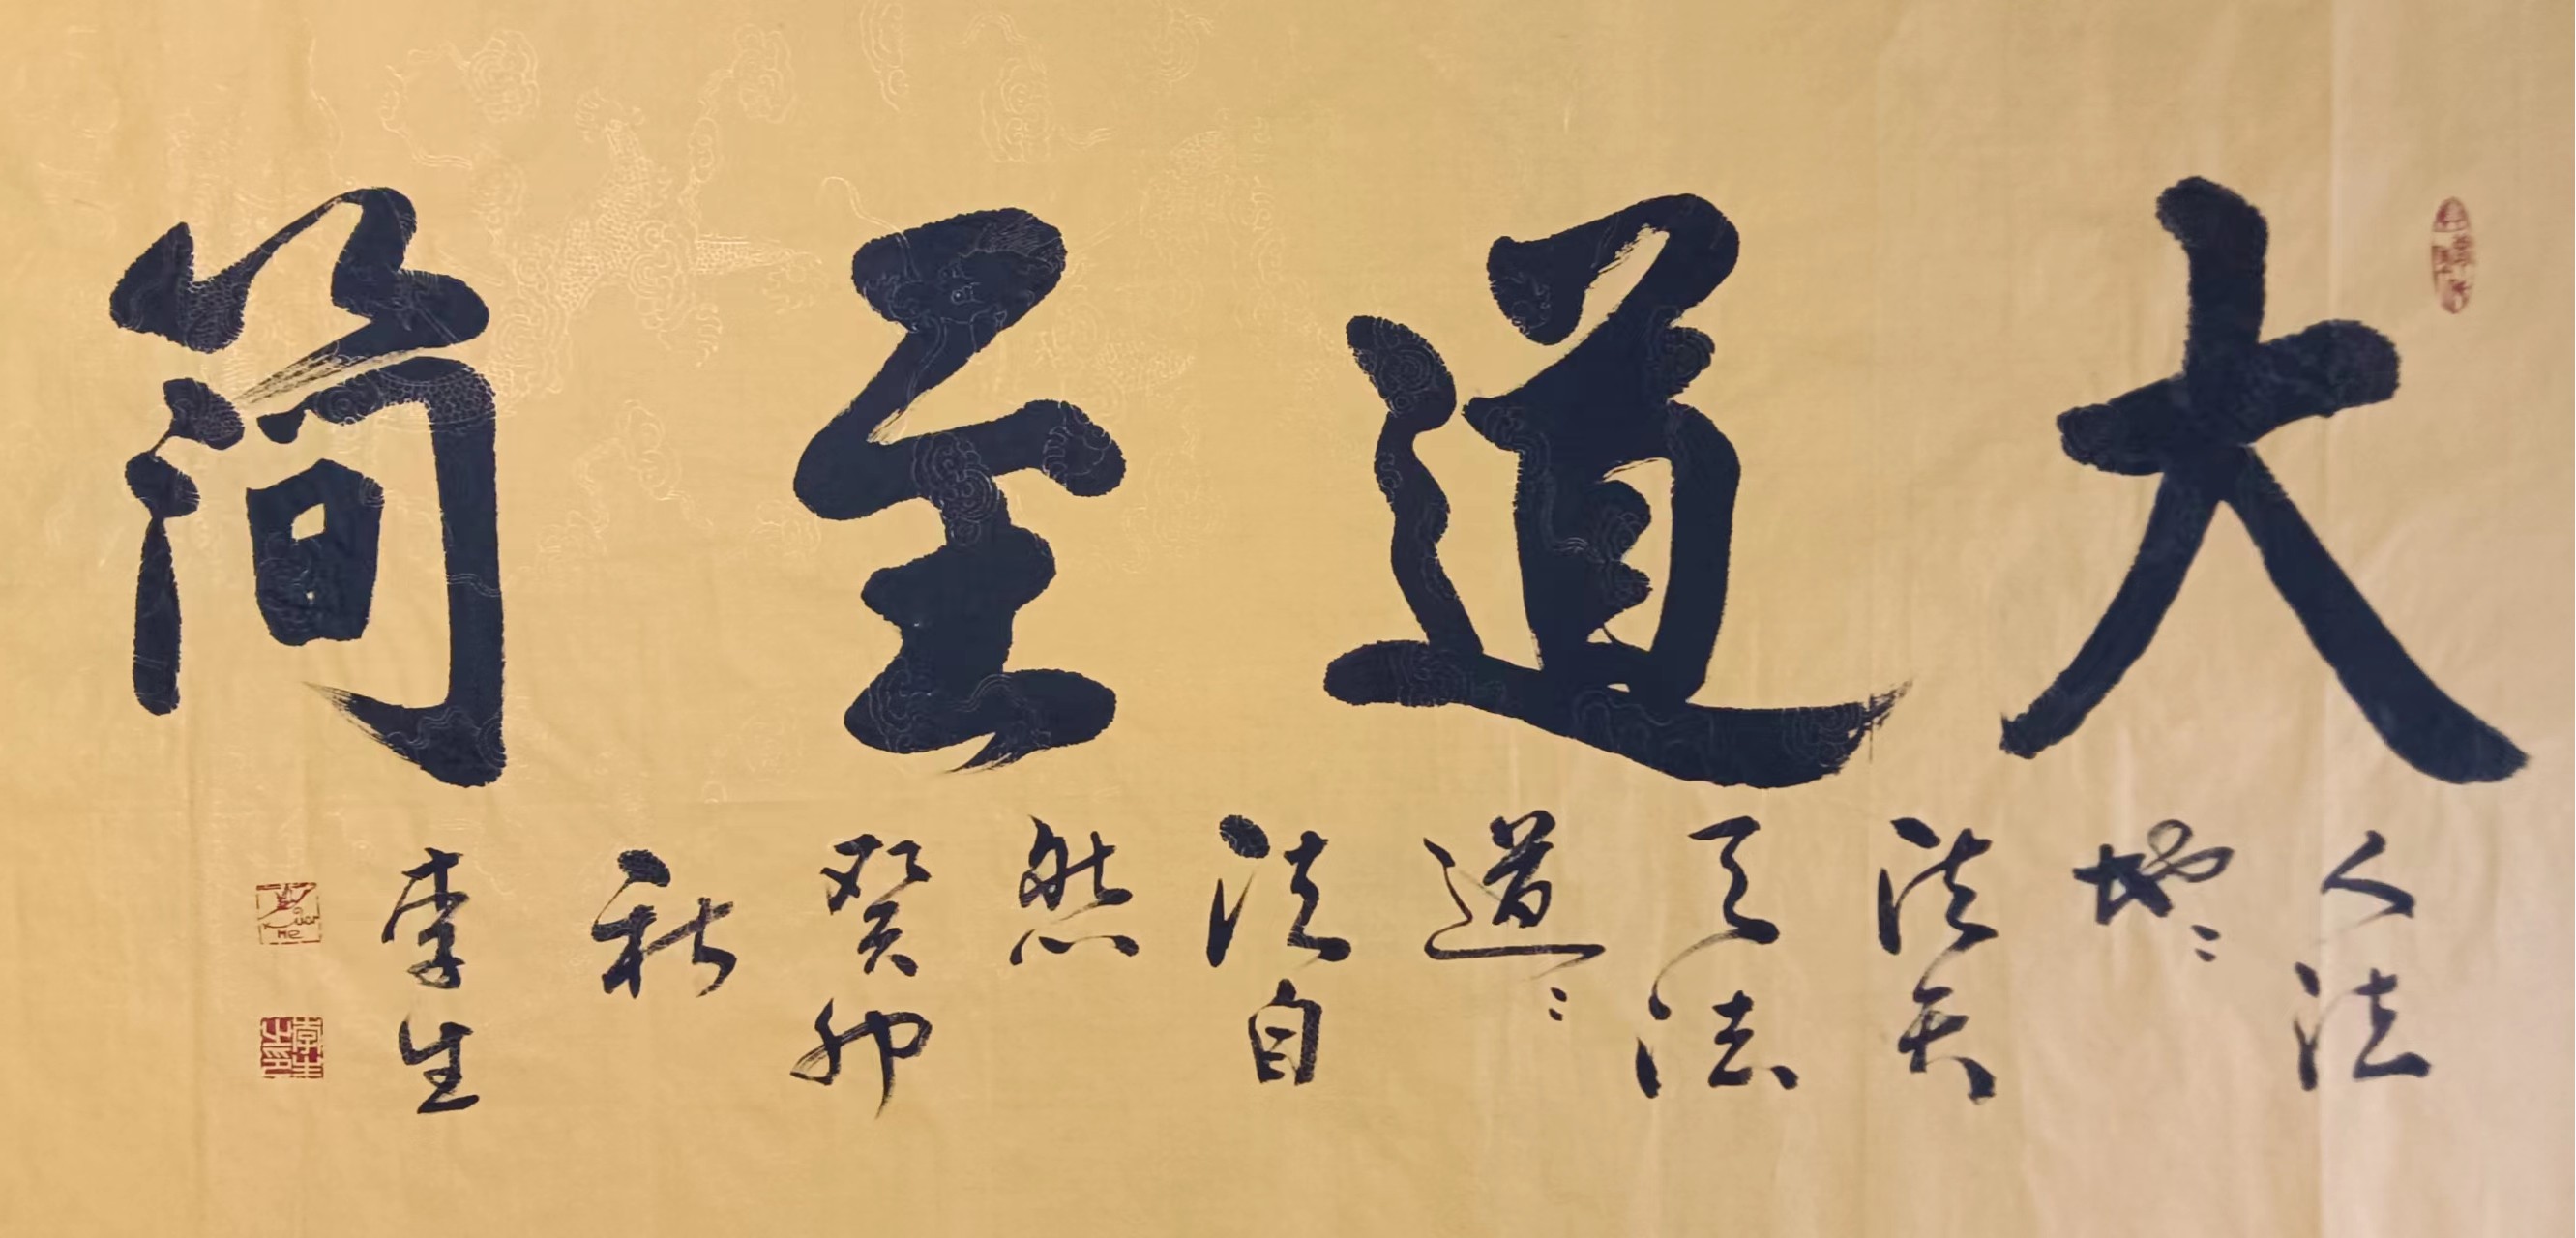 大道至简
人法
地〻
法天
天法
道〻
法自
然
癸卯
秋
李生